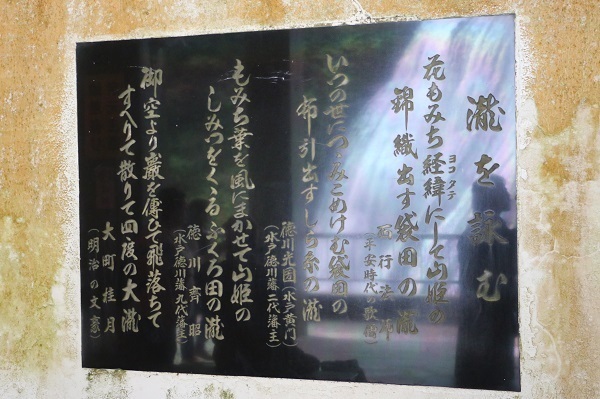 瀧を詠む
花もみち経緯にして山姫の
ヨコタテ
錦織出す袋田の瀧
西行法師
(平安時代の歌僧)
いつの世につゝみこめけむ袋田の
布引出すしら糸の瀧
徳川光圀(水戸黄門)
(水戸徳川藩二代藩主)
もみち葉を風にまかせて山姫の
しみつをくゝるふくろ田の瀧
徳川齊昭
(水戸徳川藩九代藩主)
御空より巖を傳ひて飛落ちて
すへりて散りて四段の大瀧
大町桂月
(明治の文豪)